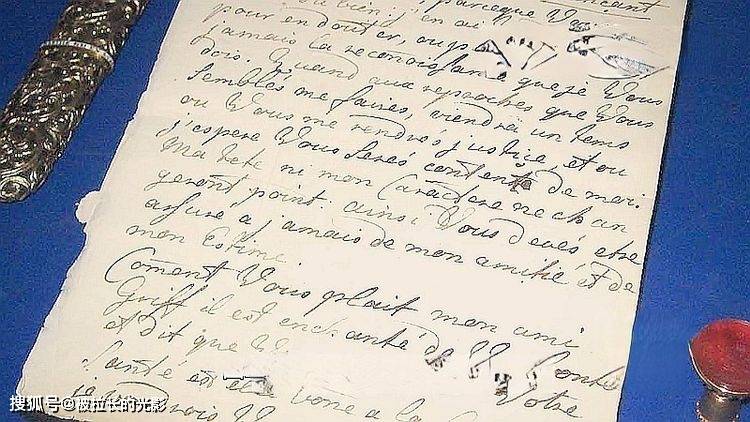 parceque Vous
bien j'en ai
pour en douter, oup
jamais la reconoissance que je Vous
dois. Quand aux reproches que Vous
sembles me faires, viendra un tems
ou Vous me rendrés justice, et ou
j'espere Vous serés content de moi.
Ma tete ni mon Caractere ne chan
geront point. ainsi Vous devés etre
assuré a jamais de mon amitié et de
mon Estime
Coment Vous plait mon ami
Griff il est enchanté de V.
et dit que
Votre
Santé est
搜狐号@被拉长的光影